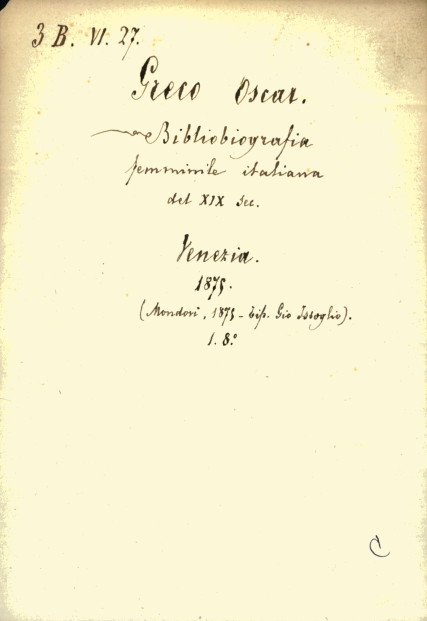 3 B. VI. 27.
Greco Oscar.
Bibliobiografia
femminile italiana
del XIX sec.
Venezia.
1875.
(Mondovì, 1875 - tip. Gio Issoglio).
1. 8.°
C